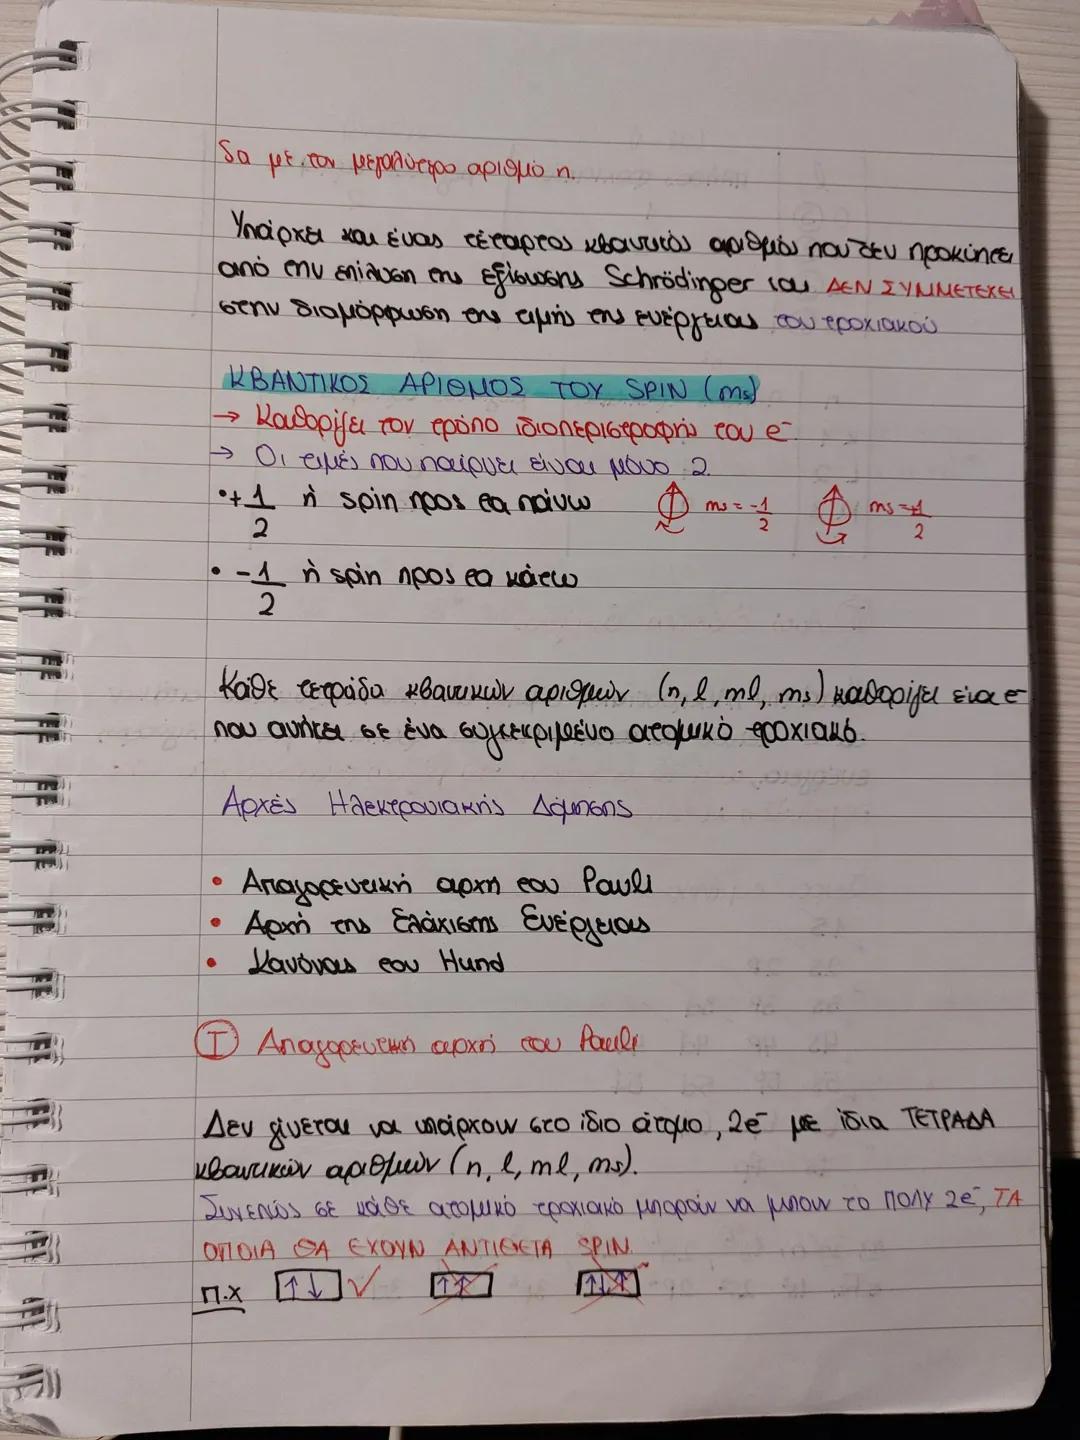 δα με τον μεγαλύτερο αριθμό n.
Υπάρχει και ένας τέταρτος κβαντικός αριθμός που δεν προκύπτει
από την επίλυση της εξίσωσης Schrödinger και ΔΕΝ ΣΥΜΜΕΤΕΧΕΙ
στην διαμόρφωση της τιμής της ενέργειας του τροχιακού
ΚΒΑΝΤΙΚΟΣ ΑΡΙΘΜΟΣ ΤΟΥ SPIN (ms)
→ Καθορίζει τον τρόπο ιδιοπεριστροφής του e⁻
→ Οι τιμές που παίρνει είναι μόνο 2.
• +1/2 ή spin προς τα πάνω ms = -1/2 ms = +1/2
• -1/2 ή spin προς τα κάτω
Κάθε τετράδα κβαντικών αριθμών (n, l, ml, ms) καθορίζει ένα e⁻
που ανήκει σε ένα συγκεκριμένο ατομικό τροχιακό.
Αρχές Ηλεκτρονιακής Δόμησης
• Απαγορευτική αρχή του Pauli
• Αρχή της Ελάχιστης Ενέργειας
• Κανόνας του Hund
I Απαγορευτική αρχή του Pauli
Δεν γίνεται να υπάρχουν στο ίδιο άτομο, 2e⁻ με ίδια ΤΕΤΡΑΔΑ
κβαντικών αριθμών (n, l, ml, ms).
Συνεπώς σε κάθε ατομικό τροχιακό μπορούν να μπουν το ΠΟΛΥ 2e⁻, ΤΑ
ΟΠΟΙΑ ΘΑ ΕΧΟΥΝ ΑΝΤΙΘΕΤΑ SPIN.
Π.Χ ↑↓ ✓ ↑↑ ↑↓↑